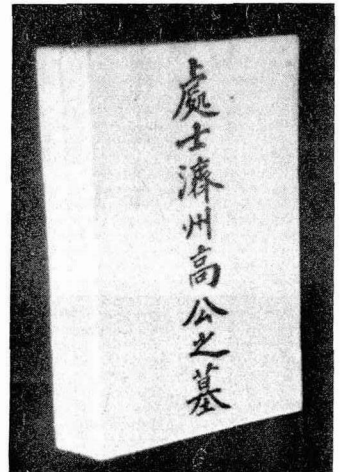 處士濟州高公之墓